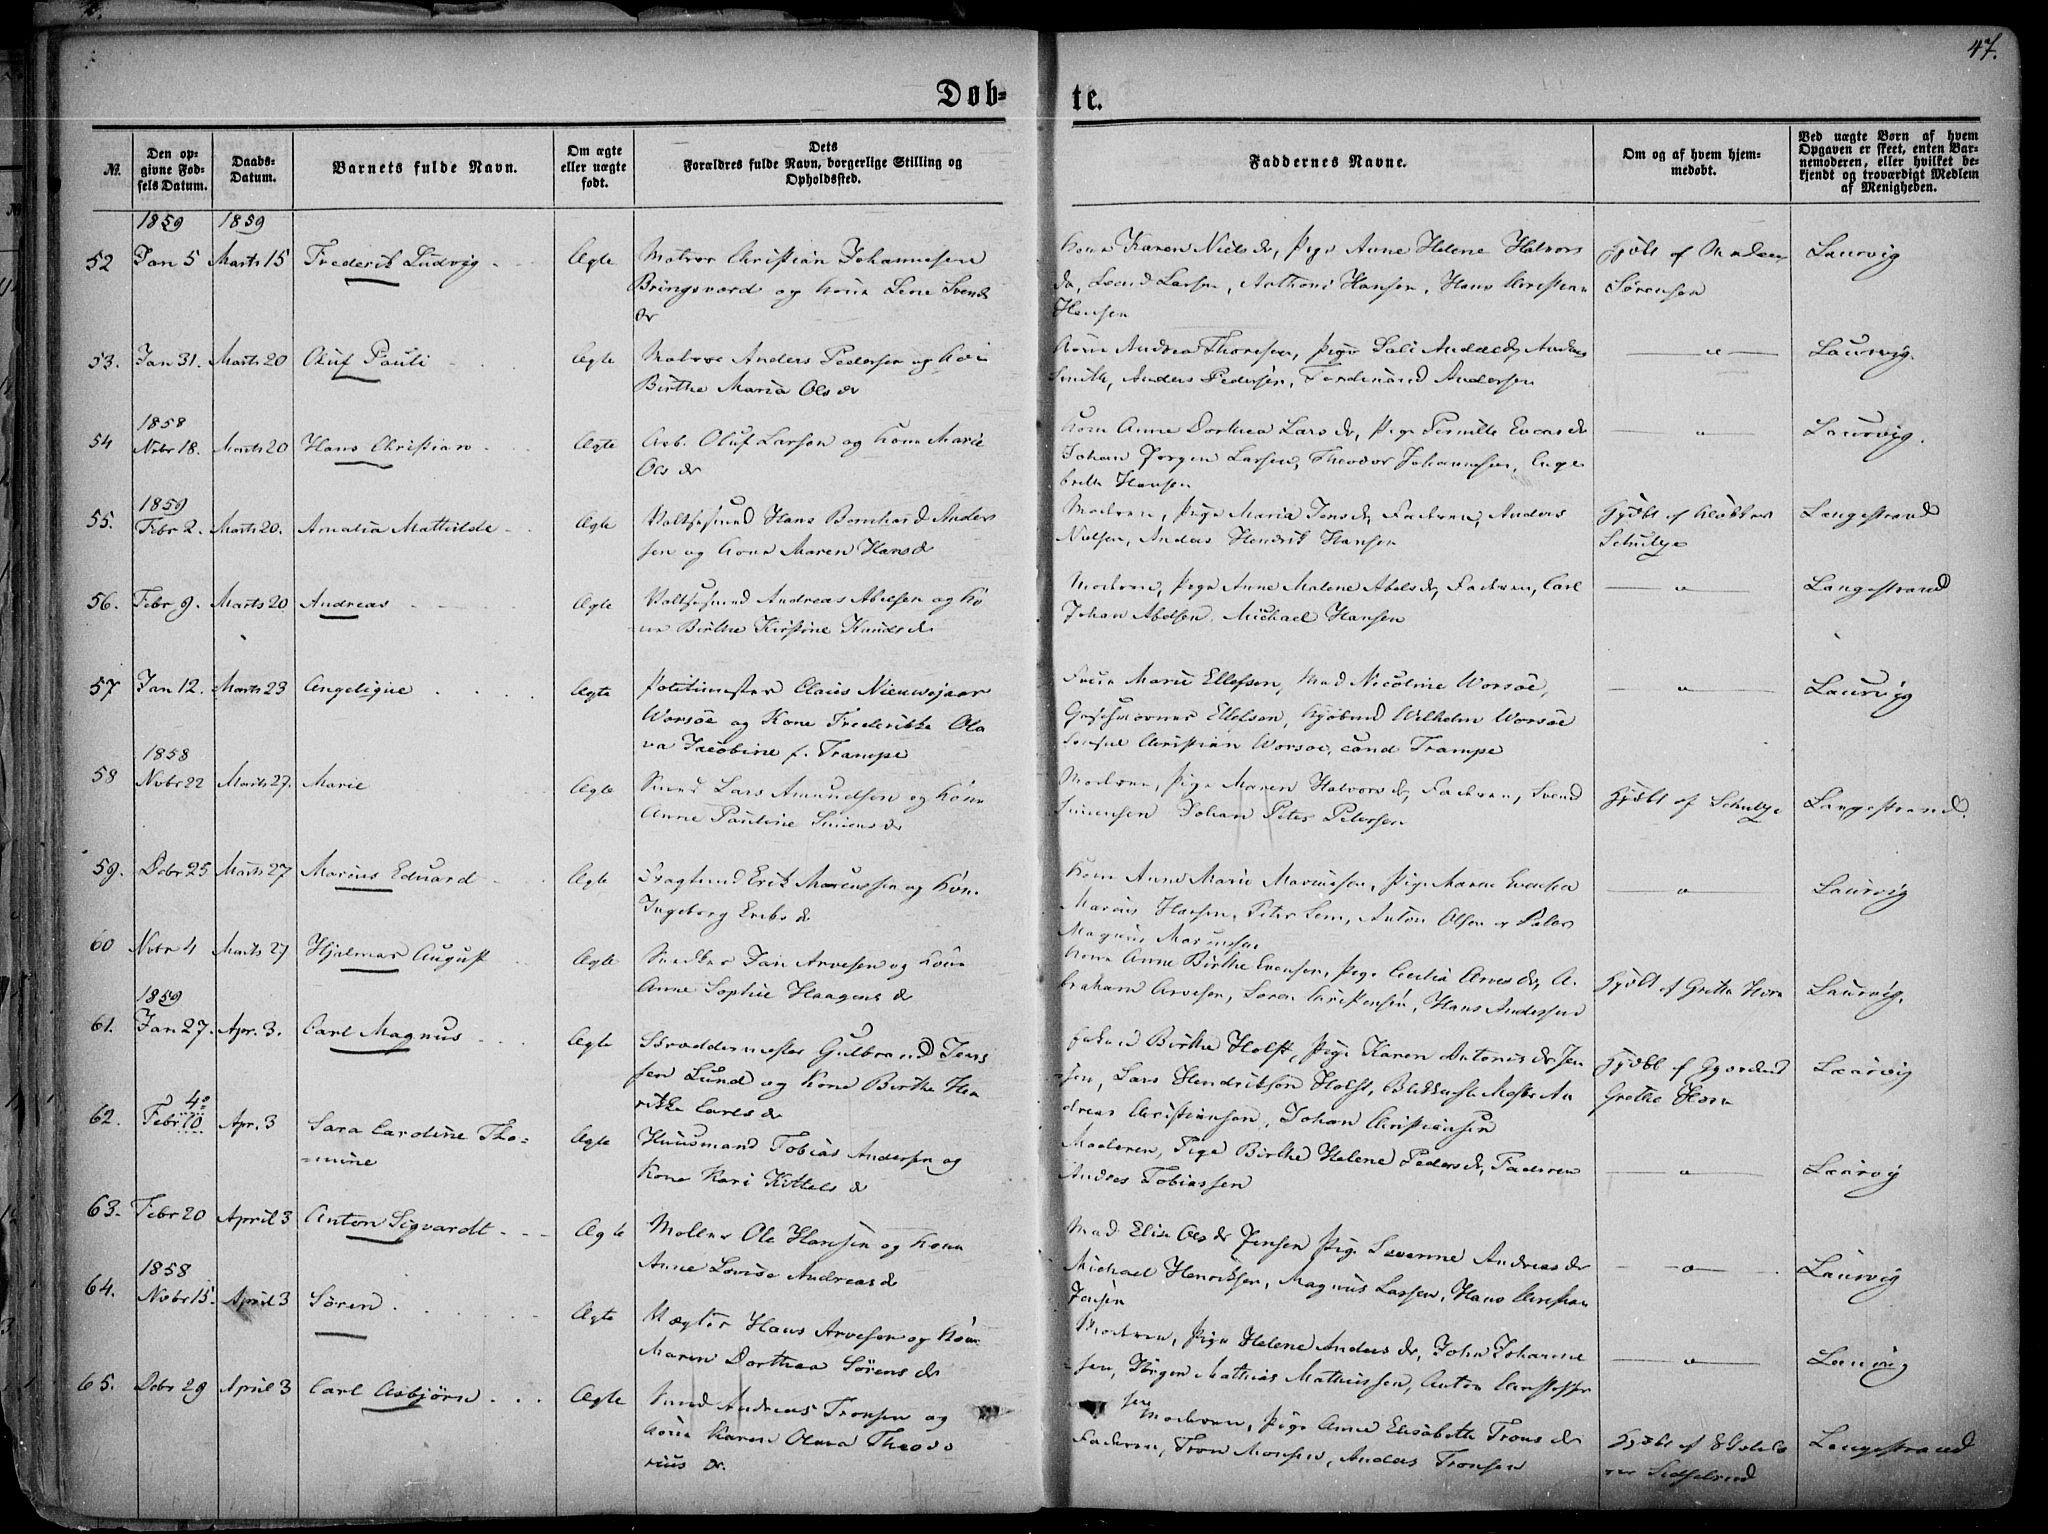 47.
Døb- te.
№.
Den op-
givne Fød-
sels Datum.
Daabs-
Datum.
Barnets fulde Navn.
Om ægte
eller uægte
født.
Dets
Forældres fulde Navn, borgerlige Stilling og
Opholdssted.
Faddernes Navne.
Om og af hvem hjem-
medøbt.
Ved uægte Børn af hvem
Opgaven er skeet, enten Bar-
nemoderen, eller hvilket be-
kjendt og troværdigt Medlem
af Menigheden.
1859 1859
52 Jan 5 Marts 15 Frederik Ludvig Ægte Matros Christian Johannesen
Bringsværd og Kone Lene Svends
dr
Kone Karen Niels dr, Pige Anne Helene Halvors
dr, Svend Larsen, Anthoni Hansen, Hans Christian
Hansen
Hjdbt af
Sørensen
Laurvig
53. Jan 31. Marts 20 Oluf Pauli Ægte Matros Anders Pedersen og Kone
Birthe Maria Ols dr
Kone Andrea Thoresen, Pige
Smith, Anders Pedersen, Ferdinand Andersen
— " —
Laurvig.
1858
54 Nvbr 18. Marts 20 Hans Christian Ægte Arb. Oluf Larsen og Kone Marie
Ols dr
Kone Anne Dorthea Lars dr, Pige Pernille Evens dr
Johan Jørgen Larsen, Theodor Johannesen, Enge
bret Hansen
— " —
Laurvig.
1859
55. Febr 2. Marts 20. Amalia Mathilde Ægte Hans Bernhard Anders
sen og Kone Maren Hans dr
Moderen, Pige Maria Jens dr, Faderen, Anders
Nielsen, Anders Hendrik Hansen
Hjdbt af Klokker
Schulze
Langestrand
56. Febr 9. Marts 20 Andreas Ægte Andreas Abelsen og Ko
=ne Birthe Kirstine Knuds dr
Moderen, Pige Anne Malene Abels dr, Faderen, Carl
Johan Abelsen, Michael Hansen
— " —
Langestrand
57 Jan 12. Marts 23 Angelique Ægte Politimester Claus Nieuwejaar
Worsøe og Kone Frederikke Ola
va Jacobine f. Trampe
Frue Marie Ellefsen, Mad Nicoline Worsøe,
Ellefsen, Kjøbmd Wilhelm Worsøe
Christian Worsøe, cand Trampe
— " —
Laurvig
1858
58 Nvbr 22 Marts 27. Marie Ægte Smed Lars Amundsen og Kone
Anne Pauline Simens dr
Moderen, Pige Maren Halvors dr, Faderen, Svend
Simensen Johan Peter Petersen
Hjdbt af Schulze
Langestrand
59. Dcbr 25 Marts 27 Marius Eduard Ægte Erik Marcussen og Kone
Ingeborg Eriks dr
Kone Anne Marie Marcussen, Pige Maren
Marius Hansen, Peter Lem, Anton Olsen og
Magnus Marcussen
— " —
Laurvig
60 Nvbr 4 Marts 27 Hjalmar August Ægte Snedker Jan Arvesen og Kone
Anne Sophie Haagens dr
Kone Anne Birthe Evensen, Pige Cecilia Arves dr, A.
braham Arvesen, Søren Christensen, Hans Andersen
Hjdbt af Grethe Horn
Laurvig.
1859
61. Jan 27. Apr. 3. Carl Magnus Ægte Skræddermester Gulbrand Jens
sen Lund og Kone Birthe Hen
rikke Carls dr
Birthe Holst, Pige Karen Antonis dr Jen
sen, Lars Hendriksen Holst, An
dreas Christiansen, Johan Christiansen
Hjdbt af
Grethe Horn
Laurvig
4de
62. Febr 10 Apr. 3 Sara Caroline Tho=
=mine Ægte Huusmand Tobias Andersen og
Kone Kari Kittels dr
Moderen, Pige Birthe Helene Peders dr, Faderen
Andres Tobiassen
— " —
Laurvig
63. Febr 20 April 3 Anton Sigvardt Ægte Møller Ole Hansen og Kone
Anne Lovise Andreas dr
Mad Elise Ols dr Jensen Pige Severine Andreas dr
Michael Henriksen, Magnus Larsen, Hans Christian
Jensen
— " —
Laurvig
1858
64. Nvbr 15. April 3 Søren Ægte Vægter Hans Arvesen og Kone
Maren Dorthea Sørens dr
Moderen, Pige Helene Anders dr, John Johanne
=sen, Jørgen Mathias Mathissen, Anton Christoffer
sen
— " —
Laurvig
65. Dcbr 29 April 3 Carl Asbjørn Ægte Smed Andreas Tronsen og
Kone Karen Olava Theodo
rius dr.
Moderen, Pige Anne Elisabeth Trons dr
Faderen, Tron Monsen, Anders Tronsen
Hjdbt af
Langestrand